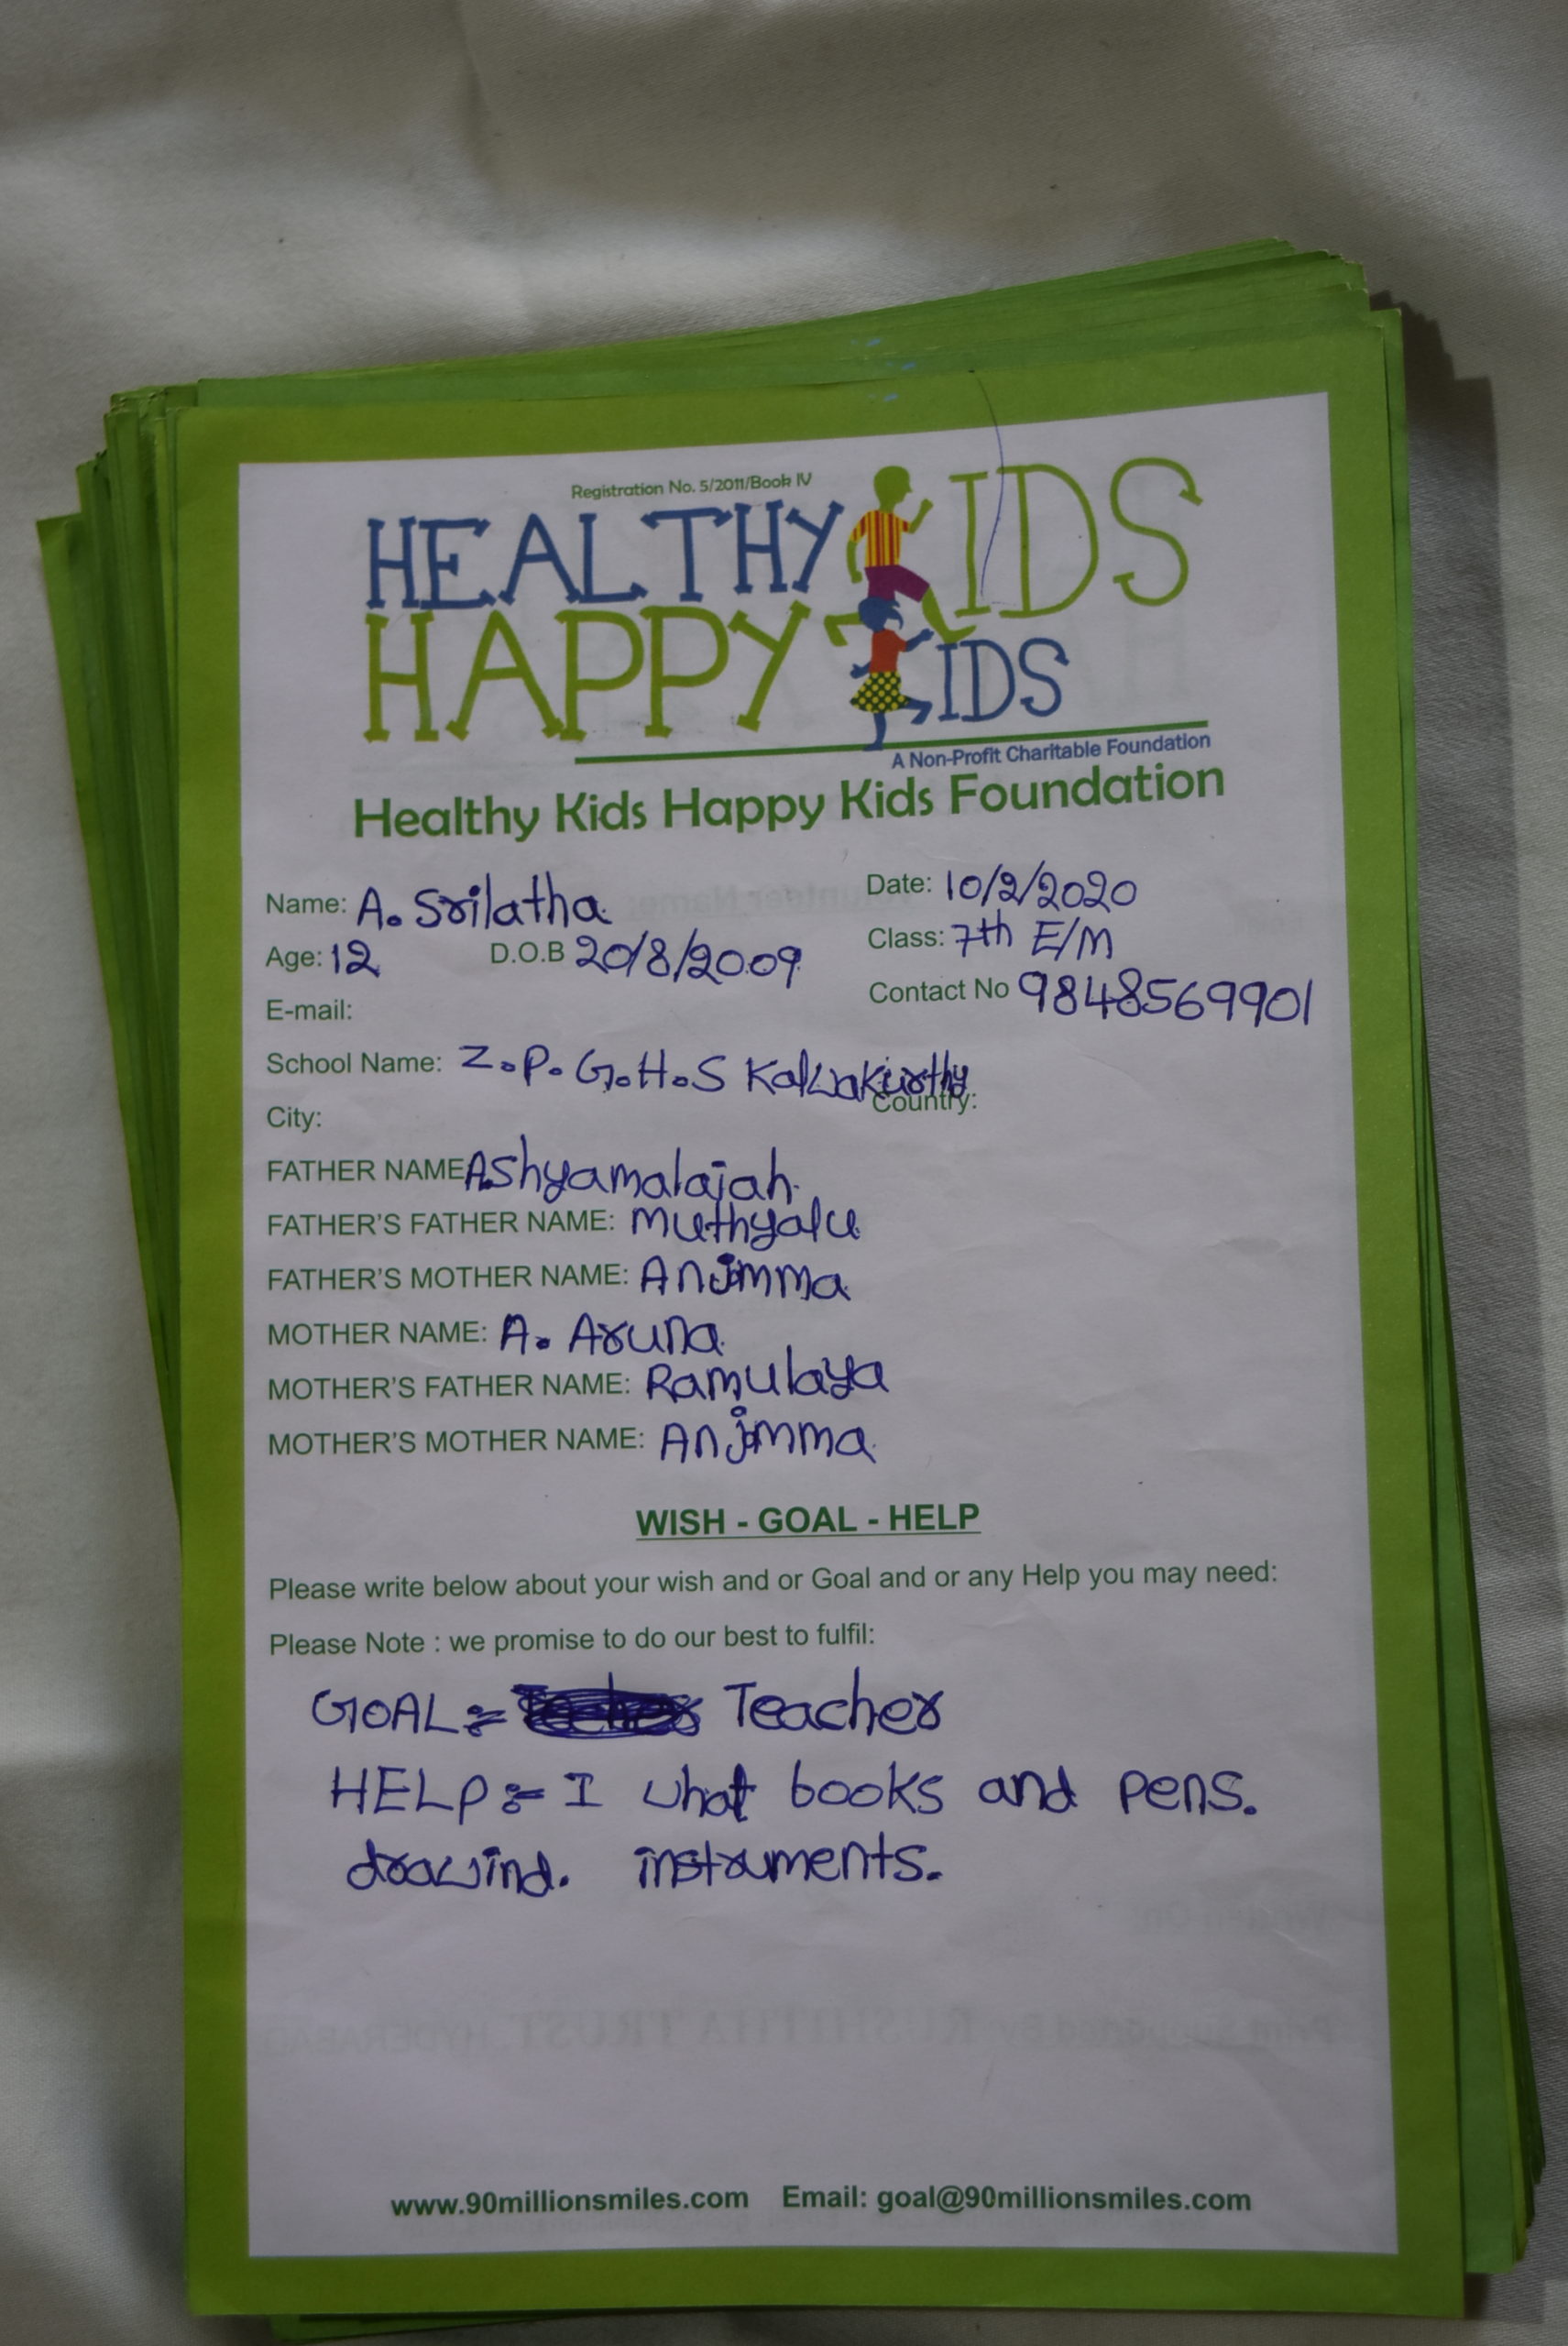 Registration No. 5/2011/Book IV
HEALTHY KIDS
HAPPY KIDS
A Non-Profit Charitable Foundation
Healthy Kids Happy Kids Foundation
Name: A. Srilatha Date: 10/2/2020
Age: 12 D.O.B 20/8/2009 Class: 7th E/M
E-mail: Contact No 9848569901
School Name: Z.P.G.H.S Kalwakurthy
City: Country:
FATHER NAME A.Shyamalaiah.
FATHER'S FATHER NAME: Muthyalu
FATHER'S MOTHER NAME: Anjmma
MOTHER NAME: A. Aruna
MOTHER'S FATHER NAME: Ramulaya
MOTHER'S MOTHER NAME: Anjmma
WISH - GOAL - HELP
Please write below about your wish and or Goal and or any Help you may need:
Please Note : we promise to do our best to fulfil:
GOAL:= Teacher
HELP:= I what books and pens.
drawind. instruments.
www.90millionsmiles.com Email: goal@90millionsmiles.com